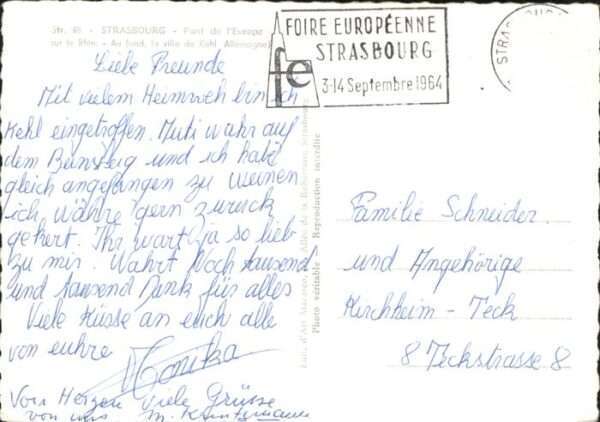 Str. 81. - STRASBOURG - Pont de l'Europe
sur le Rhin - Au fond, la ville de Kehl (Allemagne)
FOIRE EUROPÉENNE
STRASBOURG
fe
3-14 Septembre 1964
STRASBOURG
Liebe Freunde
Mit vielem Heimweh bin ich
Kehl eingetroffen. Muti wahr auf
dem Bahnsteig und ich habe
gleich angefangen zu weinen
ich währe gern zurück
gekert. Ihr wart ja so lieb
zu mir. Wahrt Noch tausend
und tausend Dank für alles
Viele Küsse an euch alle
von euhre Monika
Von Herzen Viele Grüsse
von uns. M.
Photo véritable - Reproduction interdite
Familie Schneider
und Angehörige
Kirchheim-Teck
8 Teckstrasse 8